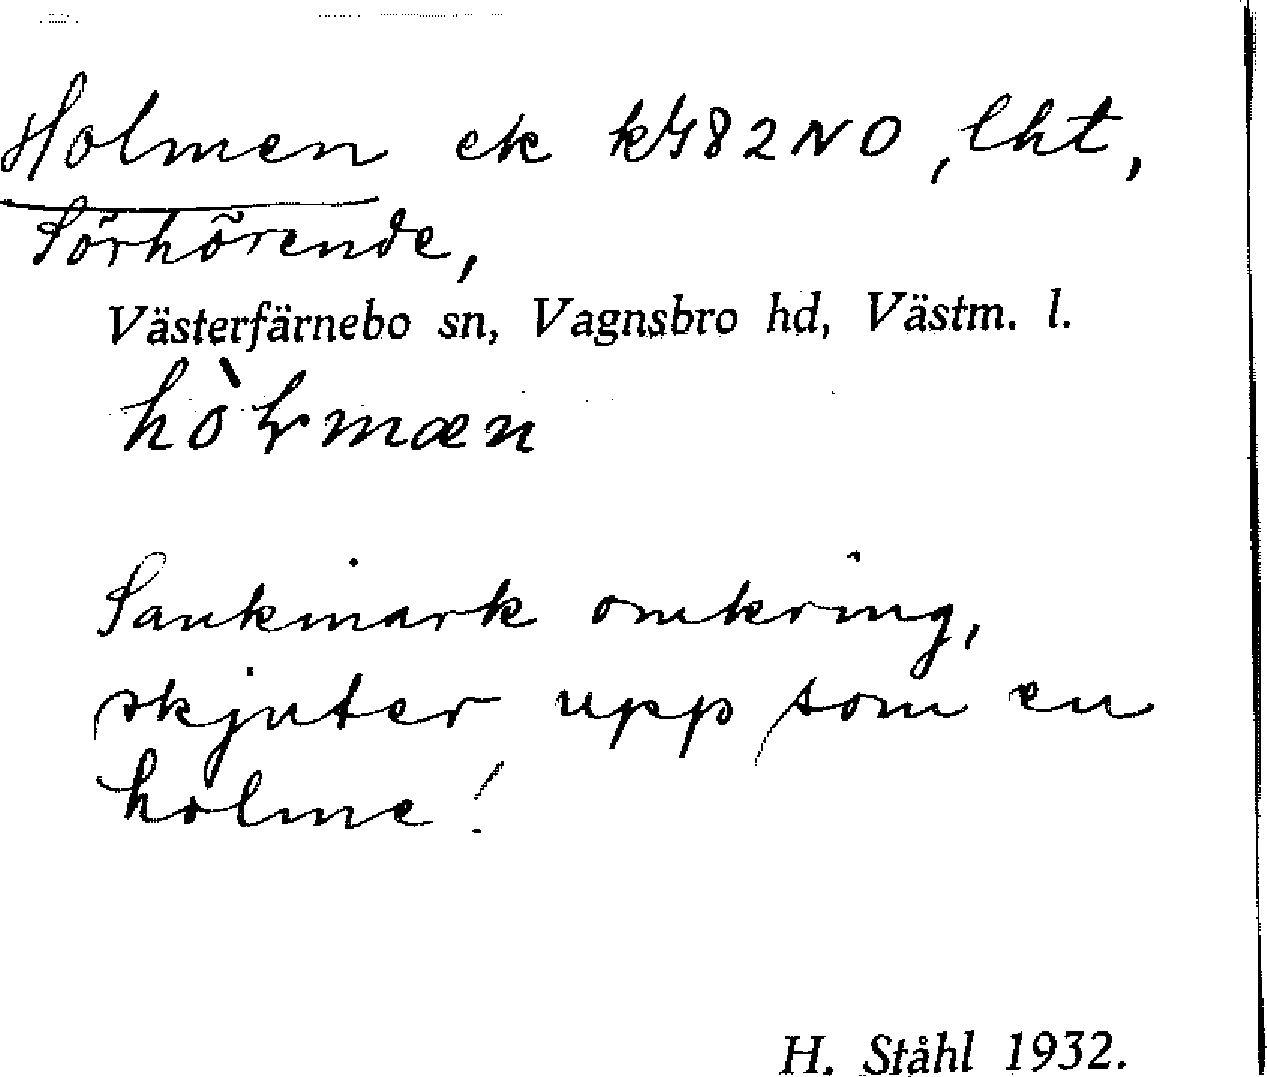 Holmen ek k482NO, lht,
Sörhörende,
Västerfärnebo sn, Vagnsbro hd, Västm. l.
Sankmark omkring,
skjuter upp som en
holme!
H. Ståhl 1932.